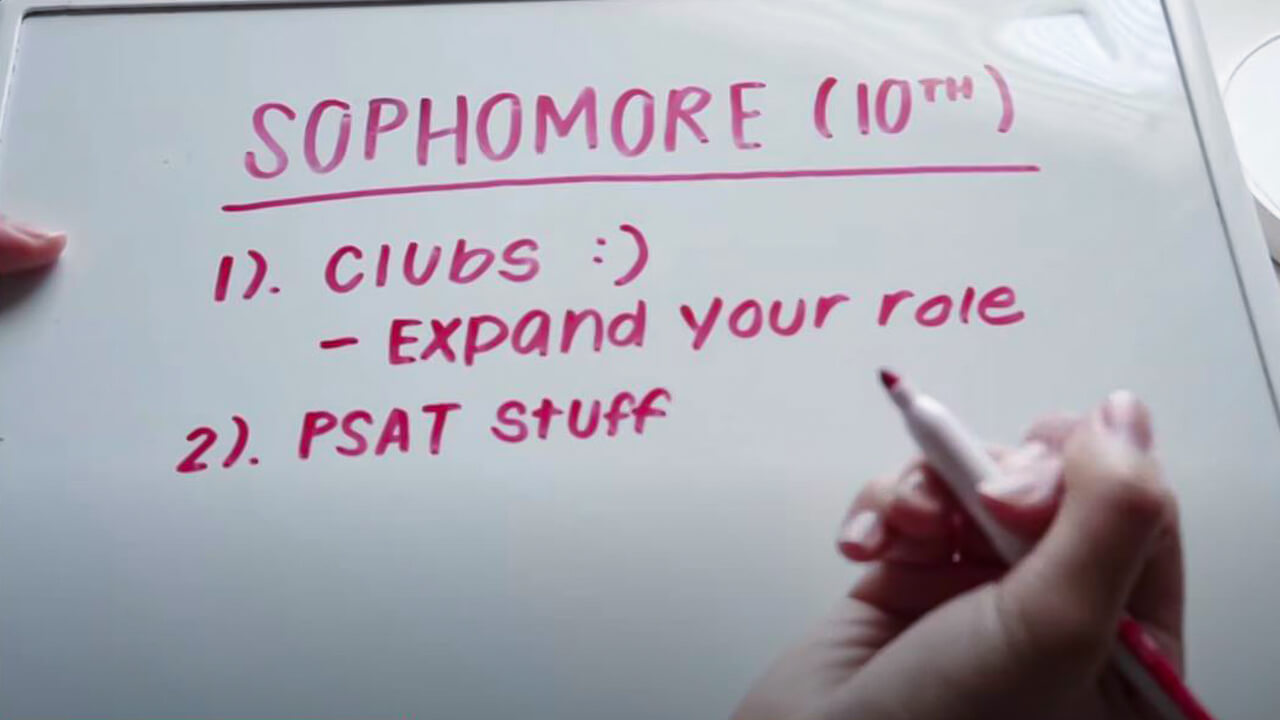 SOPHOMORE (10TH)
1). Clubs :)
- Expand your role
2). PSAT stuff